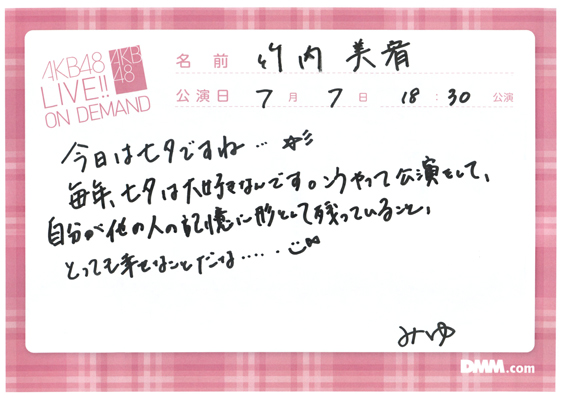 AKB48
LIVE!!
ON DEMAND
AKB
48
名前 竹内美宥
公演日 7月7日 18:30公演
今日は七夕ですね…
毎年、七夕は大好きなんです。こうやって公演をして、
自分が他の人の記憶に形として残っていること、
とっても幸せなことだな…..
みゆ
DMM.com